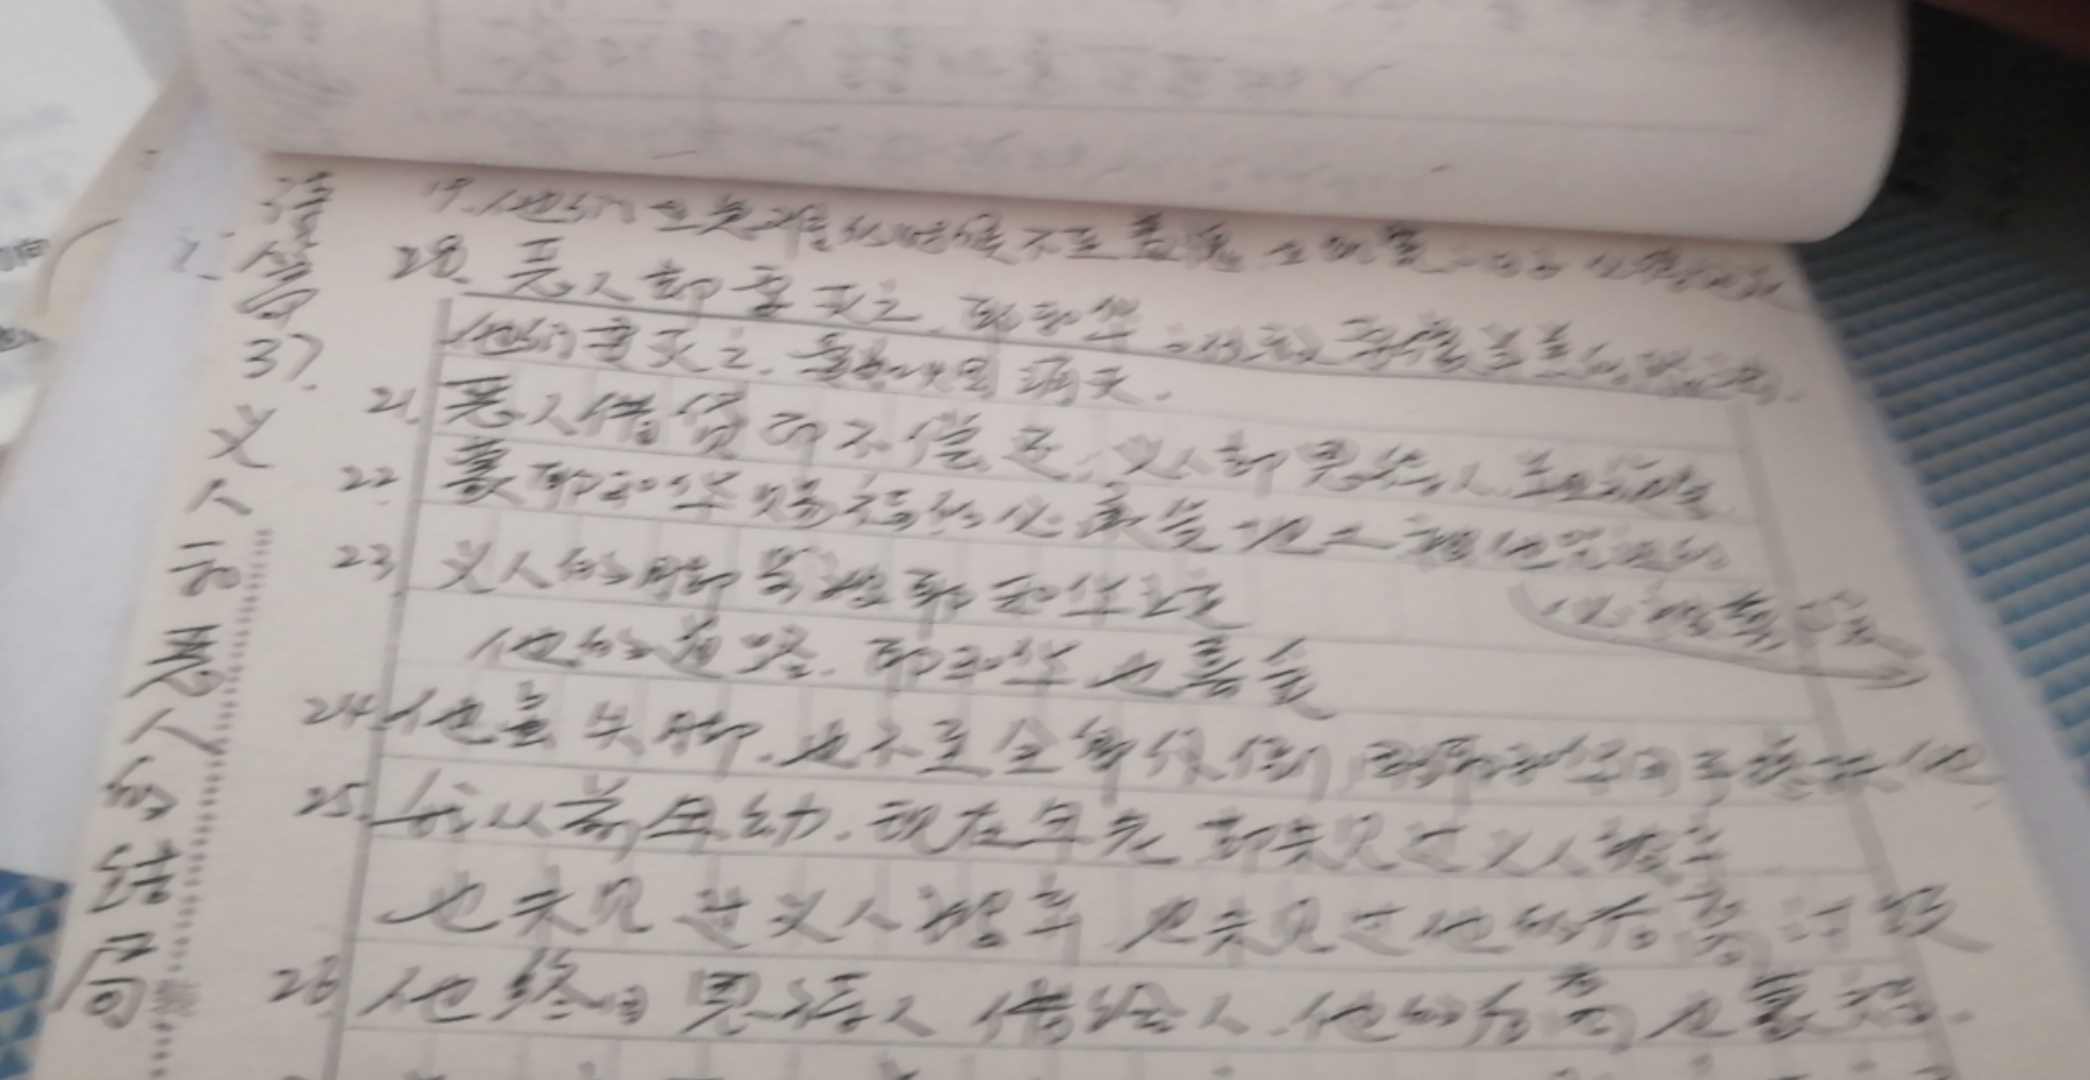 诗篇37.
义人和恶人的结局
19.他们在患难的时候不至羞愧
20.恶人却要灭亡.耶和华的仇敌要像羊羔的脂油.
他们要灭亡.要如烟消灭.
21.恶人借贷而不偿还.义人却恩待人.并且施舍
22.蒙耶和华赐福的必承受地土被他咒诅的
必被剪除
23.义人的脚步被耶和华立定
他的道路.耶和华也喜爱
24.他虽失脚.也不至全身仆倒因耶和华用手搀扶他.
25.我从前年幼.现在年老却未见过义人被弃
也未见过义人被弃也未见过他的后裔讨饭
26.他终日恩待人借给人.他的后裔也蒙福.